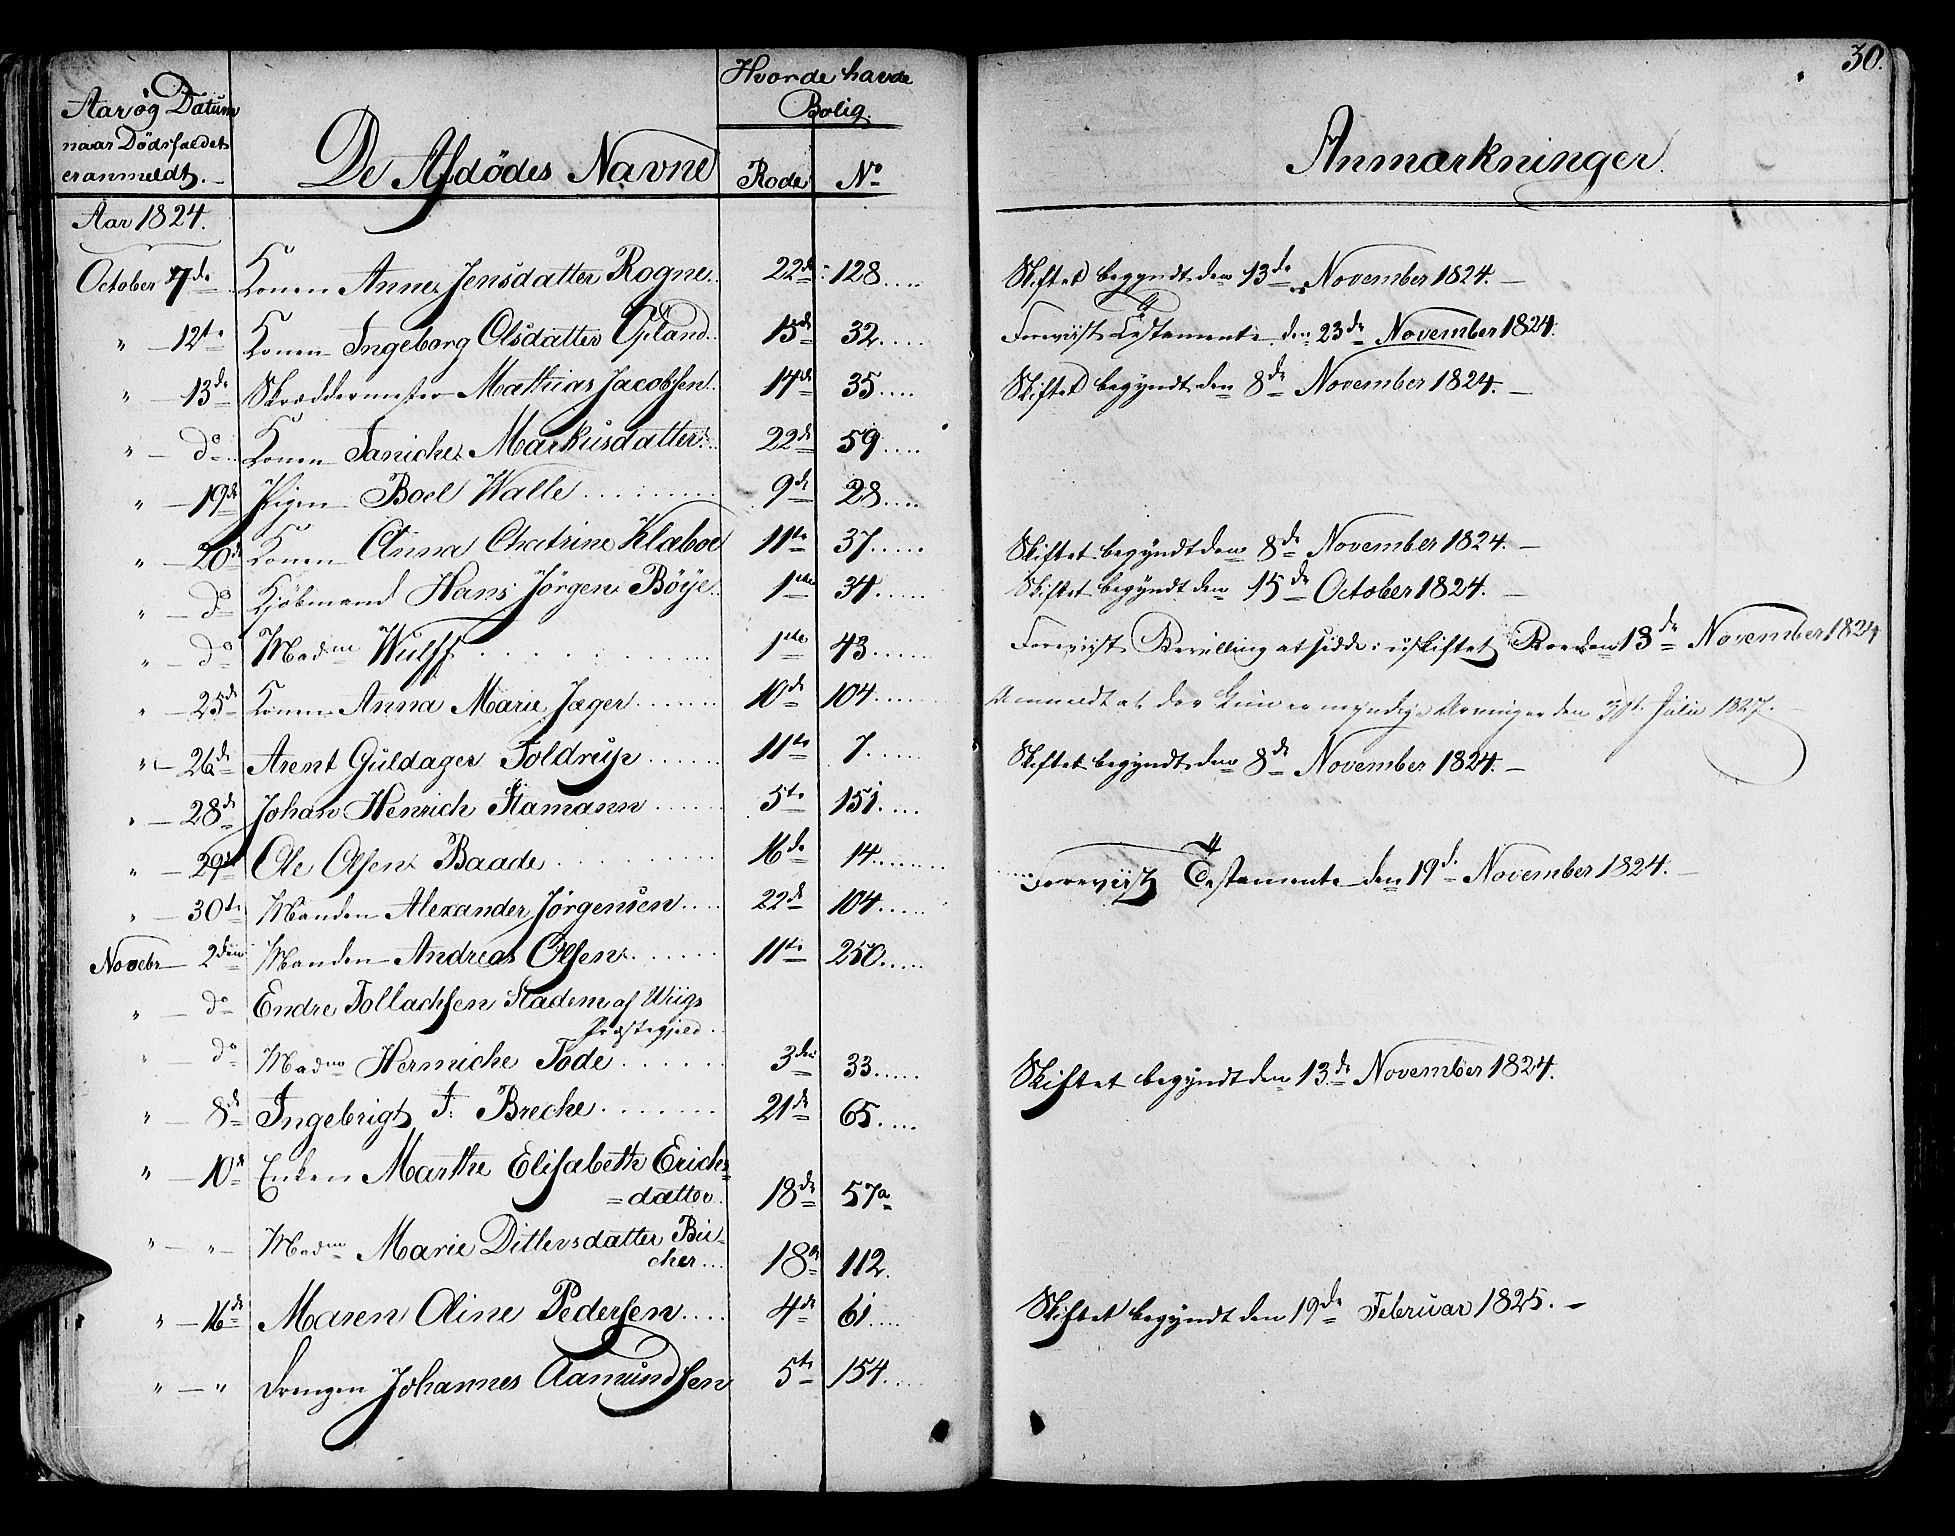 30.
Aar og Datum
naar Dödsfaldet
er anmeldt.
De Afdödes Navne
Hvor de havde
Bolig.
Rode
No
Anmærkninger.
Aar 1824.
October 7de Konen Anne Jensdatter Rogne 22de 128 Skiftet begyndt den 13de November 1824.
" 12te Konen Ingeborg Olsdatter Opland 15de 32 Foreviist Testamente den 23de November 1824.
" 13de Skræddermester Mathias Jacobsen 14de 35 Skiftet begyndt den 8de November 1824.
" do Konen Janiche Markusdatter 22de 59
" 19de Pigen Boel Walle 9de 28
" 20de Konen Anna Chatrine Klæboe 11te 37 Skiftet begyndt den 8de November 1824.
" do Kjöbmand Hans Jörgen Böye 1ste 34 Skiftet begyndt den 15de October 1824.
" do Madme Wulff 1ste 43 Foreviist Bevilling at sidde i uskiftet Boe den 13de November 1824
" 25de Konen Anna Marie Jæger 10de 104 Anmeldt at der kun er myndige Arvinger den Julii 1827.
" 26de Arent Guldager Toldrup 11te 7 Skiftet begyndt den 8de November 1824.
" 28de Johan Henrich Stamann 5te 151
" 29de Ole Olsen Baade 16de 14 Foreviist Testamente den 19de November 1824.
" 30te Manden Alexander Jörgensen 22de 104
Novebr 2den Manden Andreas Olsen 11te 250
" do Endre Tollachsen Stadem af Wiigs
Præstegjeld
" do Madme Hermiche Tode 3die 33 Skiftet begyndt den 13de November 1824.
" 8de Ingebrigt J: Breche 21de 65
" 10de Enken Marthe Elisabeth Erichs=
=datter 18de 57a
" " Madme Marie Ditlevsdatter Bü=
cher 18de 112
" 16de Maren Oline Pedersen 4de 61 Skiftet begyndt den 19de Februar 1825.
" " Drengen Johannes Aamundsen 5te 154